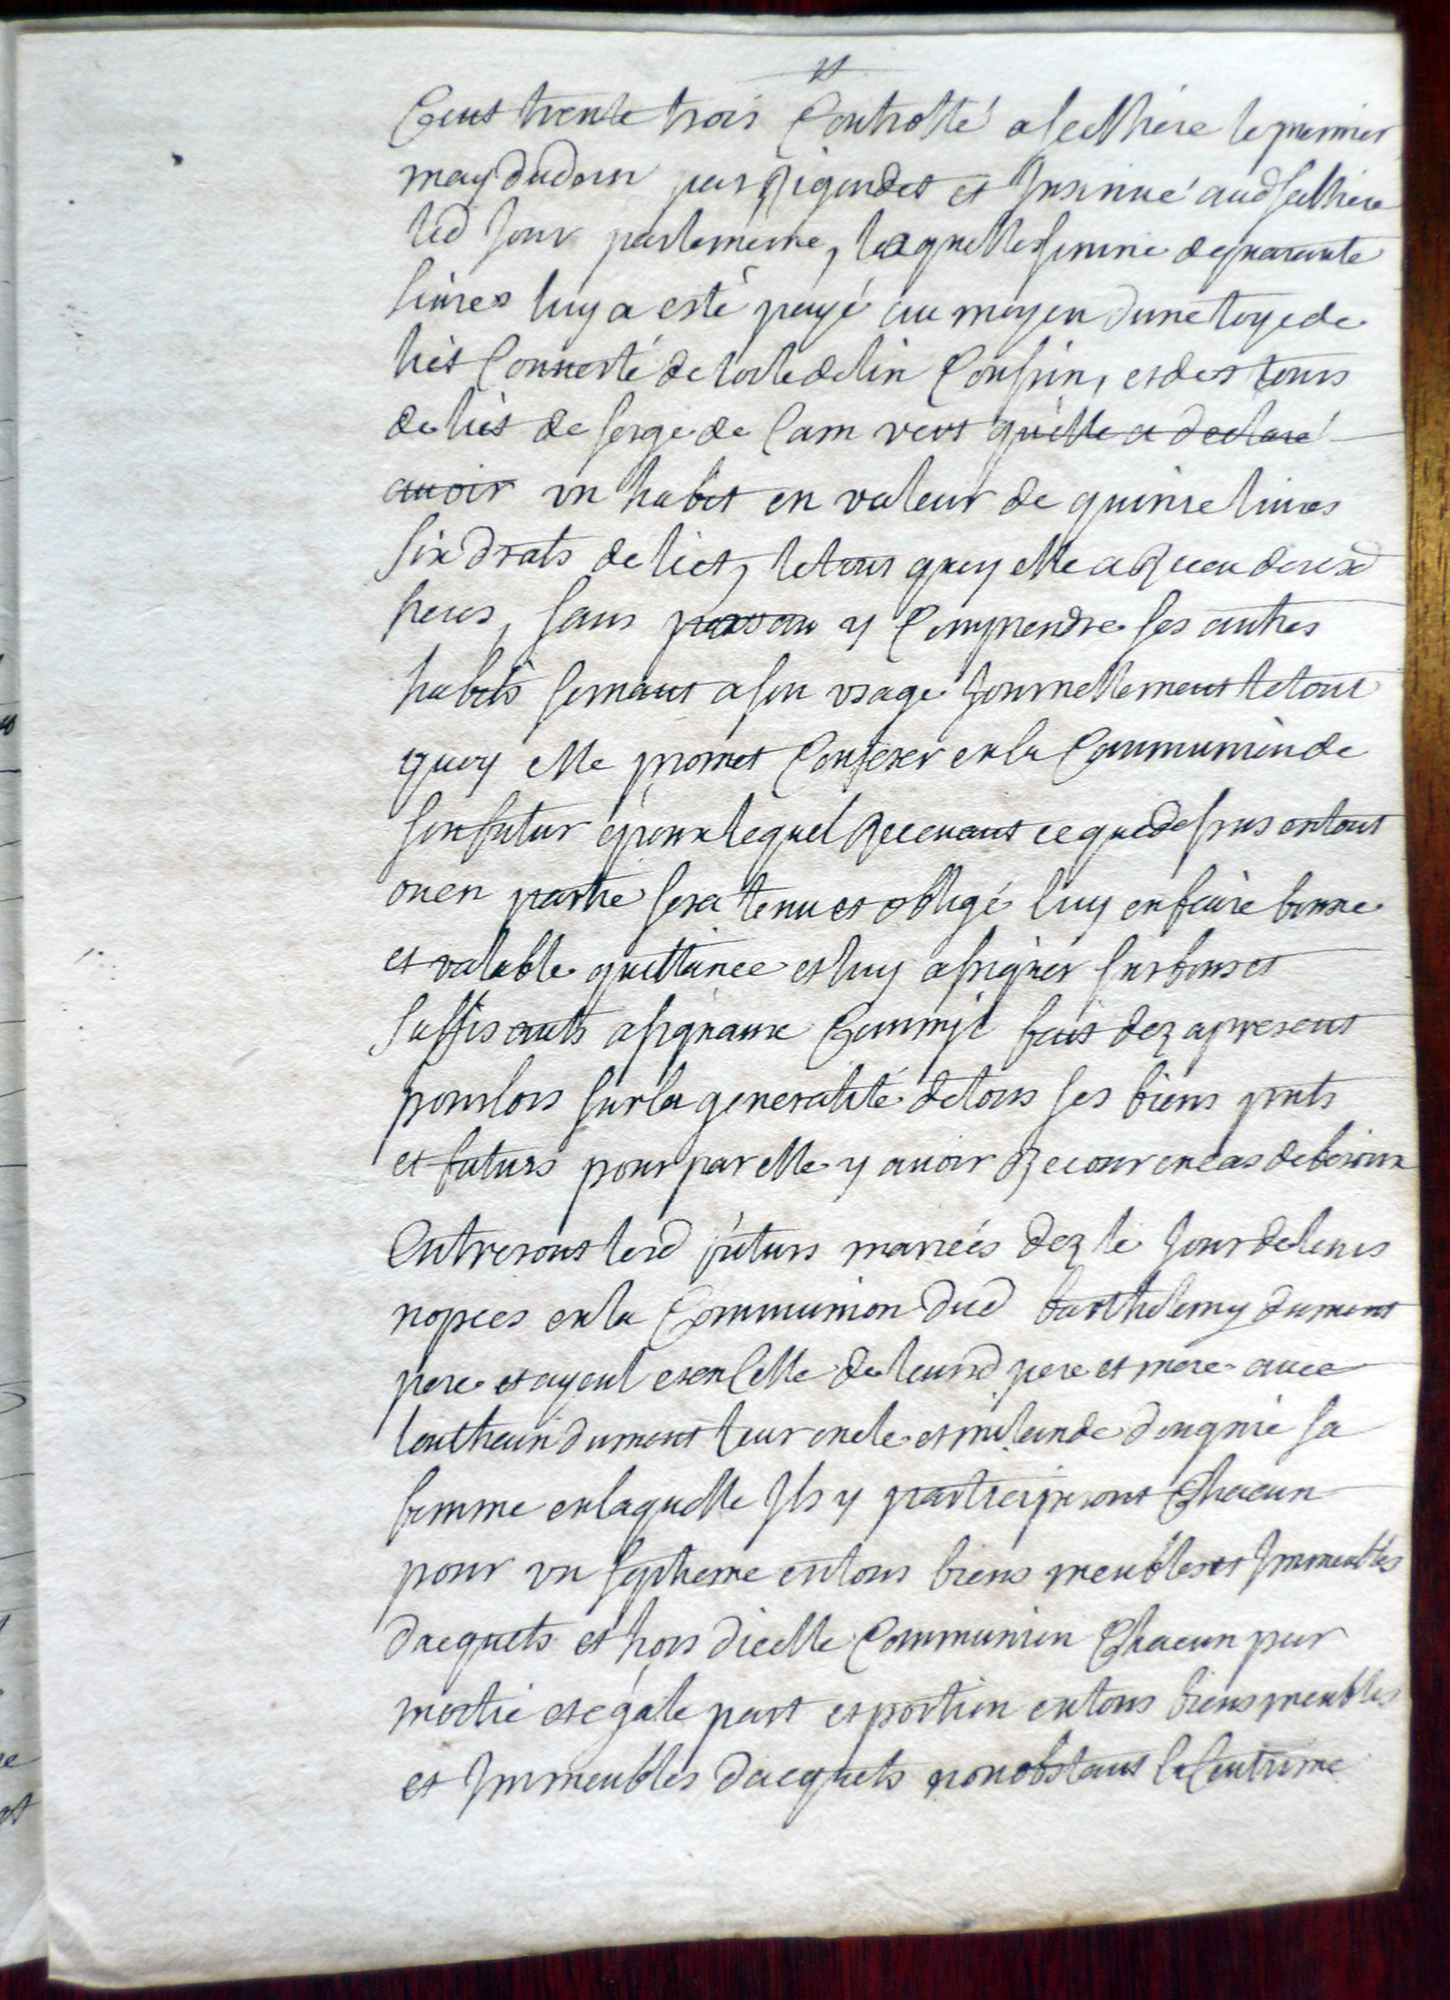 Cent trente trois Controllé a Sellhiere le premier
may dud an par Rigoudet et Insinué aud Sellhiere
led Jour par le meme, laquelle somme de quarante
livres luy a esté payé au moyen d une toye de
lict Couverte de toile de lin Cousin, et des tours
de lict de serge de Cam vert qu elle a declaré
avoir un habit en valeur de quinze livres
six draps de lict, le tout quoy elle a Receu de sesd
freres, sans y Comprendre ses autres
habits servant a son usage Journellement le tout
quoy elle promet Conferer en la Communion de
son futur epoux lequel Recevant ce que dessus en tout
ou en partie sera tenu et obligé luy en faire bonne
et valable quittance et luy assigner sur bons et
suffisants assignaux Comm il fait dez a present
pour lors sur la generalité de tous ses biens pnts
et futurs pour par elle y avoir Recour en cas de besoin
Entreront lesd futurs mariés dez le Jour de leurs
nopces en la Communion dud barthelemy dumont
pere et ayeul et en Celle de leursd pere et mere avec
louthain dumont leur oncle et milande dougnie sa
femme en laquelle Ils y participeront Chacun
pour un septieme en tous biens meubles et Immeubles
d acquets et hors d icelle Communion Chacun par
moitié et egale part et portion en tous biens meubles
et Immeubles d acquets nonobstant la Coutume